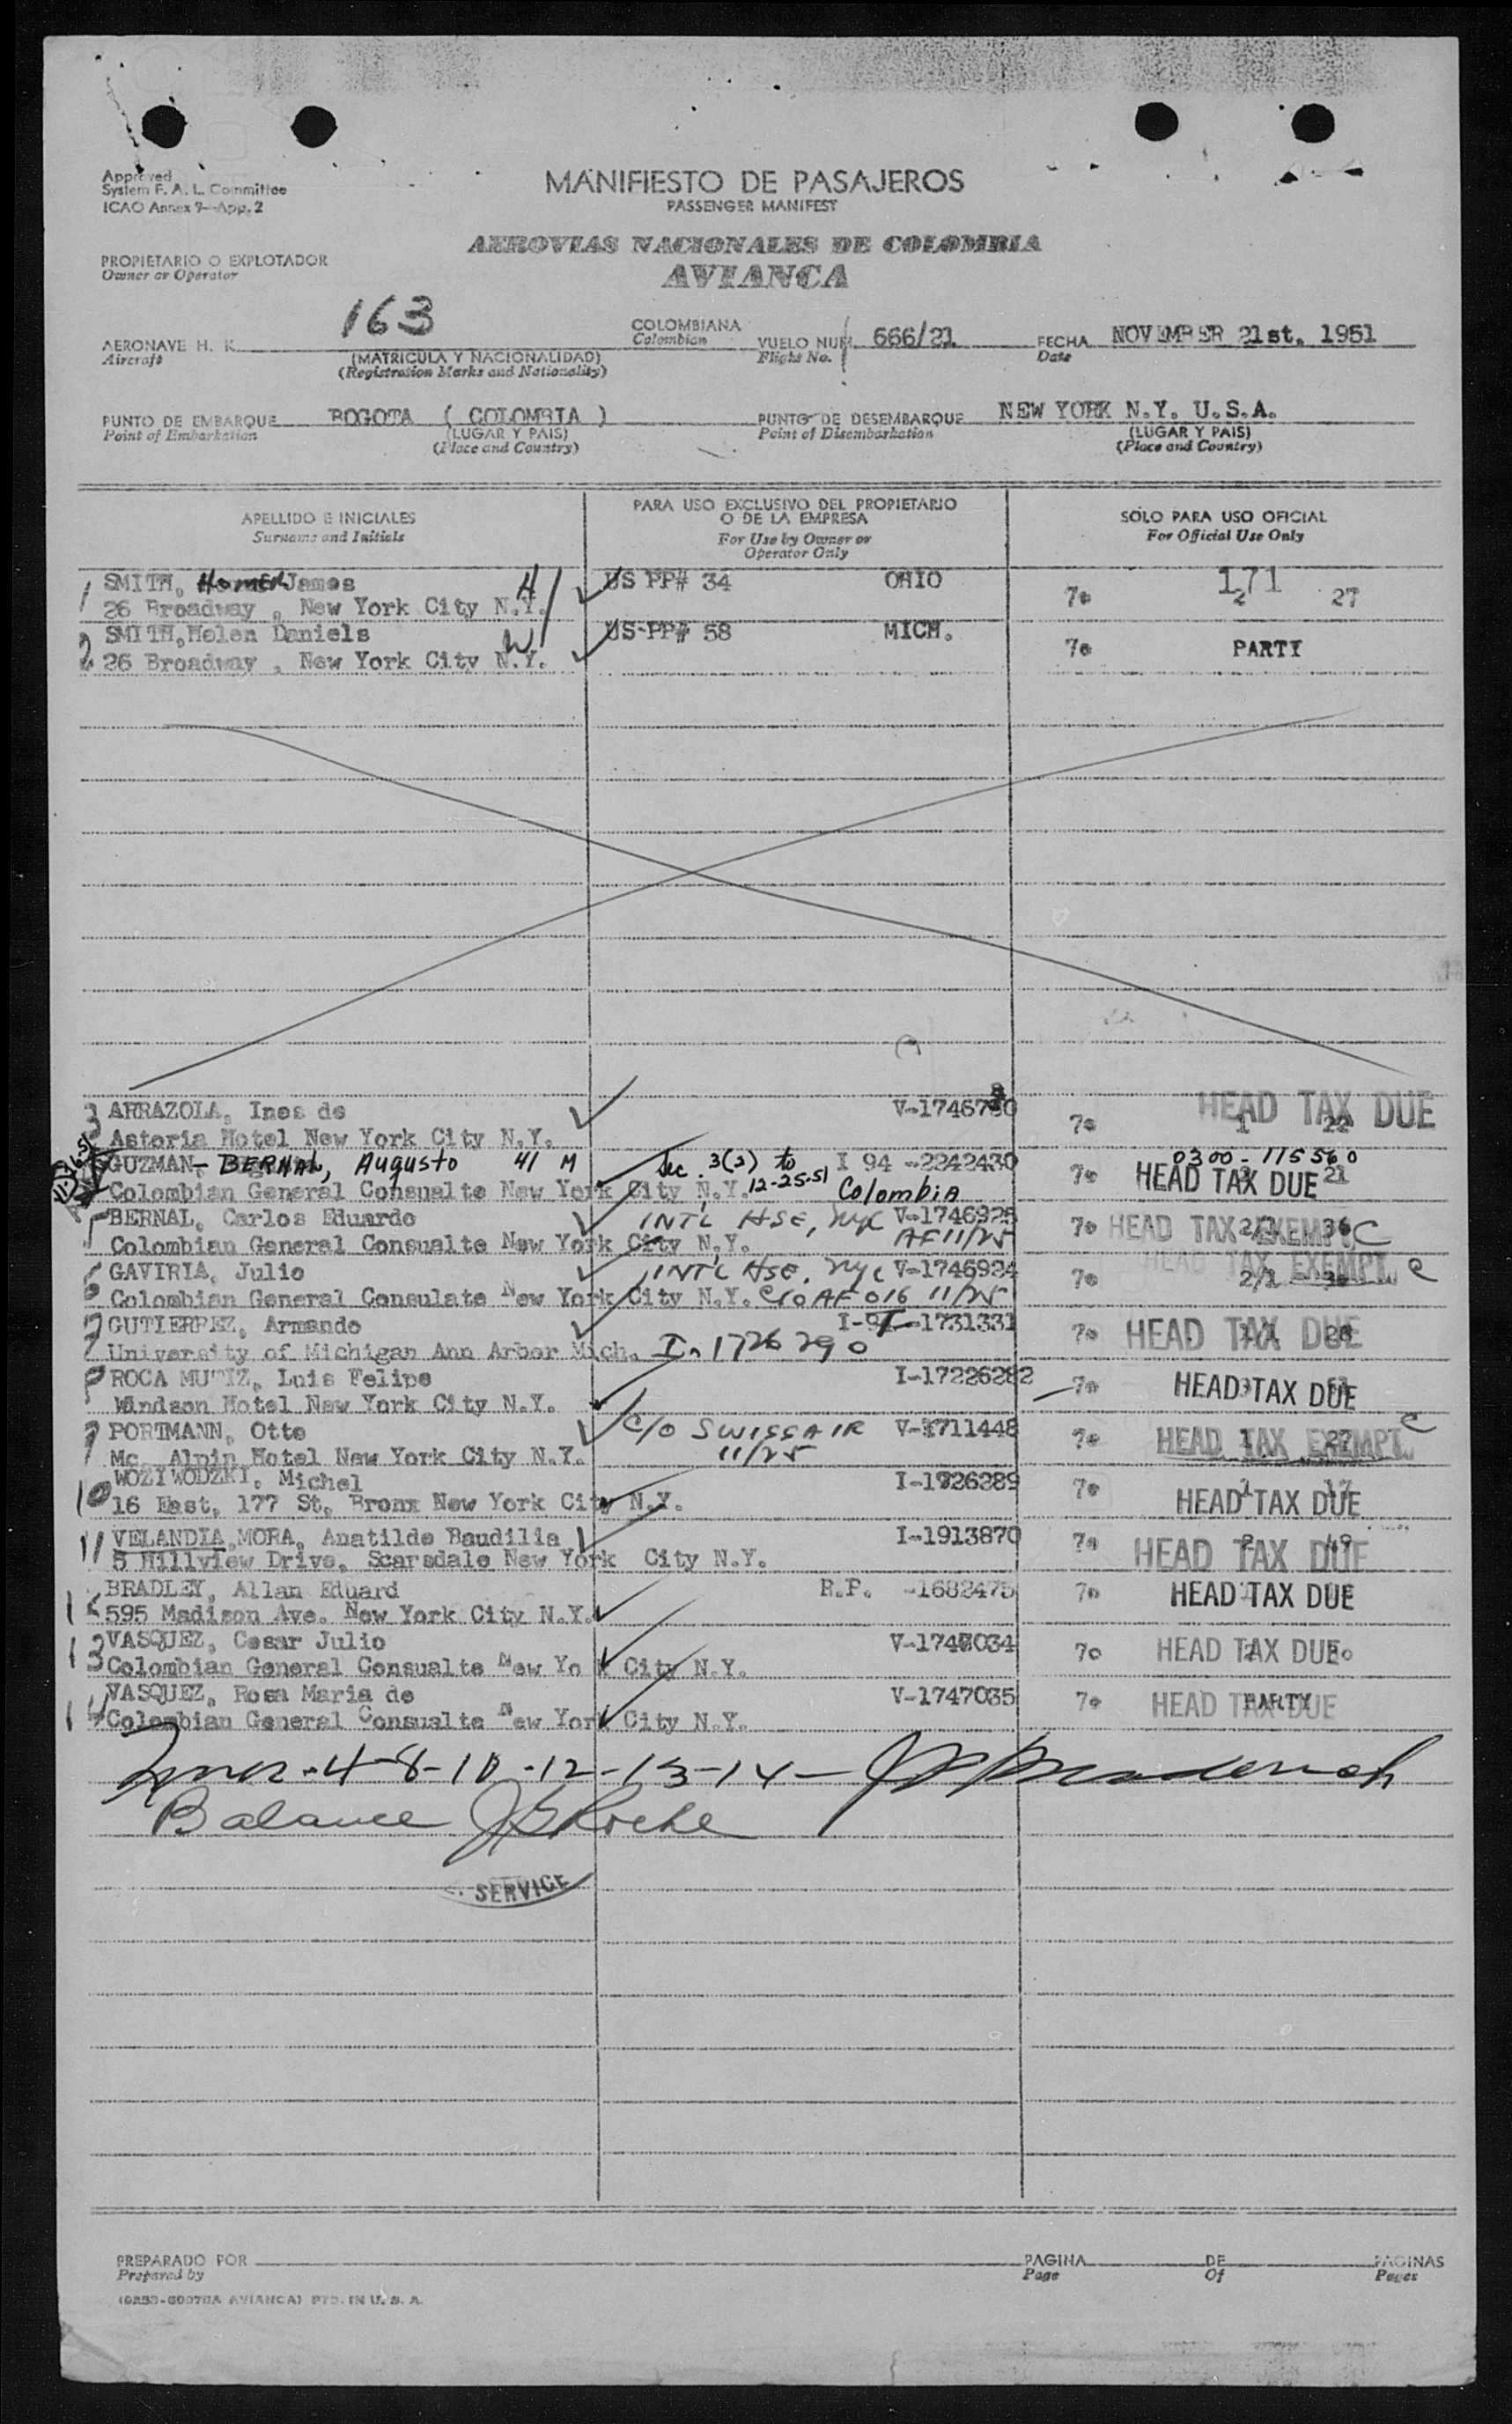 Approved
System F. A. L. Committee
ICAO Annex 9—App. 2
MANIFIESTO DE PASAJEROS
PASSENGER MANIFEST
AEROVIAS NACIONALES DE COLOMBIA
AVIANCA
PROPIETARIO O EXPLOTADOR
Owner or Operator
AERONAVE H. K. 163 COLOMBIANA VUELO NUM. 666/21 FECHA NOVEMBER 21st, 1951
Aircraft (MATRICULA Y NACIONALIDAD) Colombian Flight No. Date
(Registration Marks and Nationality)
PUNTO DE EMBARQUE BOGOTA ( COLOMBIA ) PUNTO DE DESEMBARQUE NEW YORK N.Y. U.S.A.
Point of Embarkation (LUGAR Y PAIS) Point of Disembarkation (LUGAR Y PAIS)
(Place and Country) (Place and Country)
APELLIDO E INICIALES PARA USO EXCLUSIVO DEL PROPIETARIO O DE LA EMPRESA SOLO PARA USO OFICIAL
Surname and Initials For Use by Owner or Operator Only For Official Use Only
1 SMITH, Homer James H US PP# 34 OHIO 70 171
26 Broadway , New York City N.Y. 2 27
2 SMITH, Helen Daniels W US-PP# 58 MICH. 70 PARTY
26 Broadway , New York City N.Y.
3 ARRAZOLA, Ines de V-1746780 70 HEAD TAX DUE 1 22
Astoria Hotel New York City N.Y.
GUZMAN- BERNAL, Augusto 41 M Sec. 3(2) to I 94 -2242430 0300-115560
Colombian General Consualte New York City N.Y. 12-25-51 Colombia 70 HEAD TAX DUE 21
5 BERNAL, Carlos Eduardo INT'L HSE, NYC V-1746925 70 HEAD TAX EXEMPT 36 C
Colombian General Consualte New York City N.Y. AF 11/25
6 GAVIRIA, Julio INT'L HSE, NYC V-1746924 70 HEAD TAX EXEMPT 2/1 C
Colombian General Consulate New York City N.Y. C/O AF 016 11/25
7 GUTIERREZ, Armando I-1731331 70 HEAD TAX DUE
University of Michigan Ann Arbor Mich. I-1726290
8 ROCA MUTIZ, Luis Felipe I-17226282 70 HEAD TAX DUE
Windson Hotel New York City N.Y.
9 PORTMANN, Otto C/O SWISSAIR V-1711448 70 HEAD TAX EXEMPT 1 27 C
Mc. Alpin Hotel New York City N.Y. 11/25
10 WOZIWODZKI, Michel I-1726289 70 HEAD TAX DUE
16 East, 177 St, Bronx New York City N.Y.
11 VELANDIA MORA, Anatilde Baudilia I-1913870 70 HEAD TAX DUE 2 49
5 Hillview Drive, Scarsdale New York City N.Y.
12 BRADLEY, Allan Eduard R.P. -1682475 70 HEAD TAX DUE
595 Madison Ave. New York City N.Y.
13 VASQUEZ, Cesar Julio V-1747034 70 HEAD TAX DUE
Colombian General Consualte New Yo k City N.Y.
14 VASQUEZ, Rosa Maria de V-1747035 70 HEAD TAX DUE PARTY
Colombian General Consualte New York City N.Y.
4-8-10-12-13-14-
Balance J Roche
SERVICE
PREPARADO POR PAGINA DE PAGINAS
Prepared by Page Of Pages
AVIANCA) PTD. IN U. S. A.